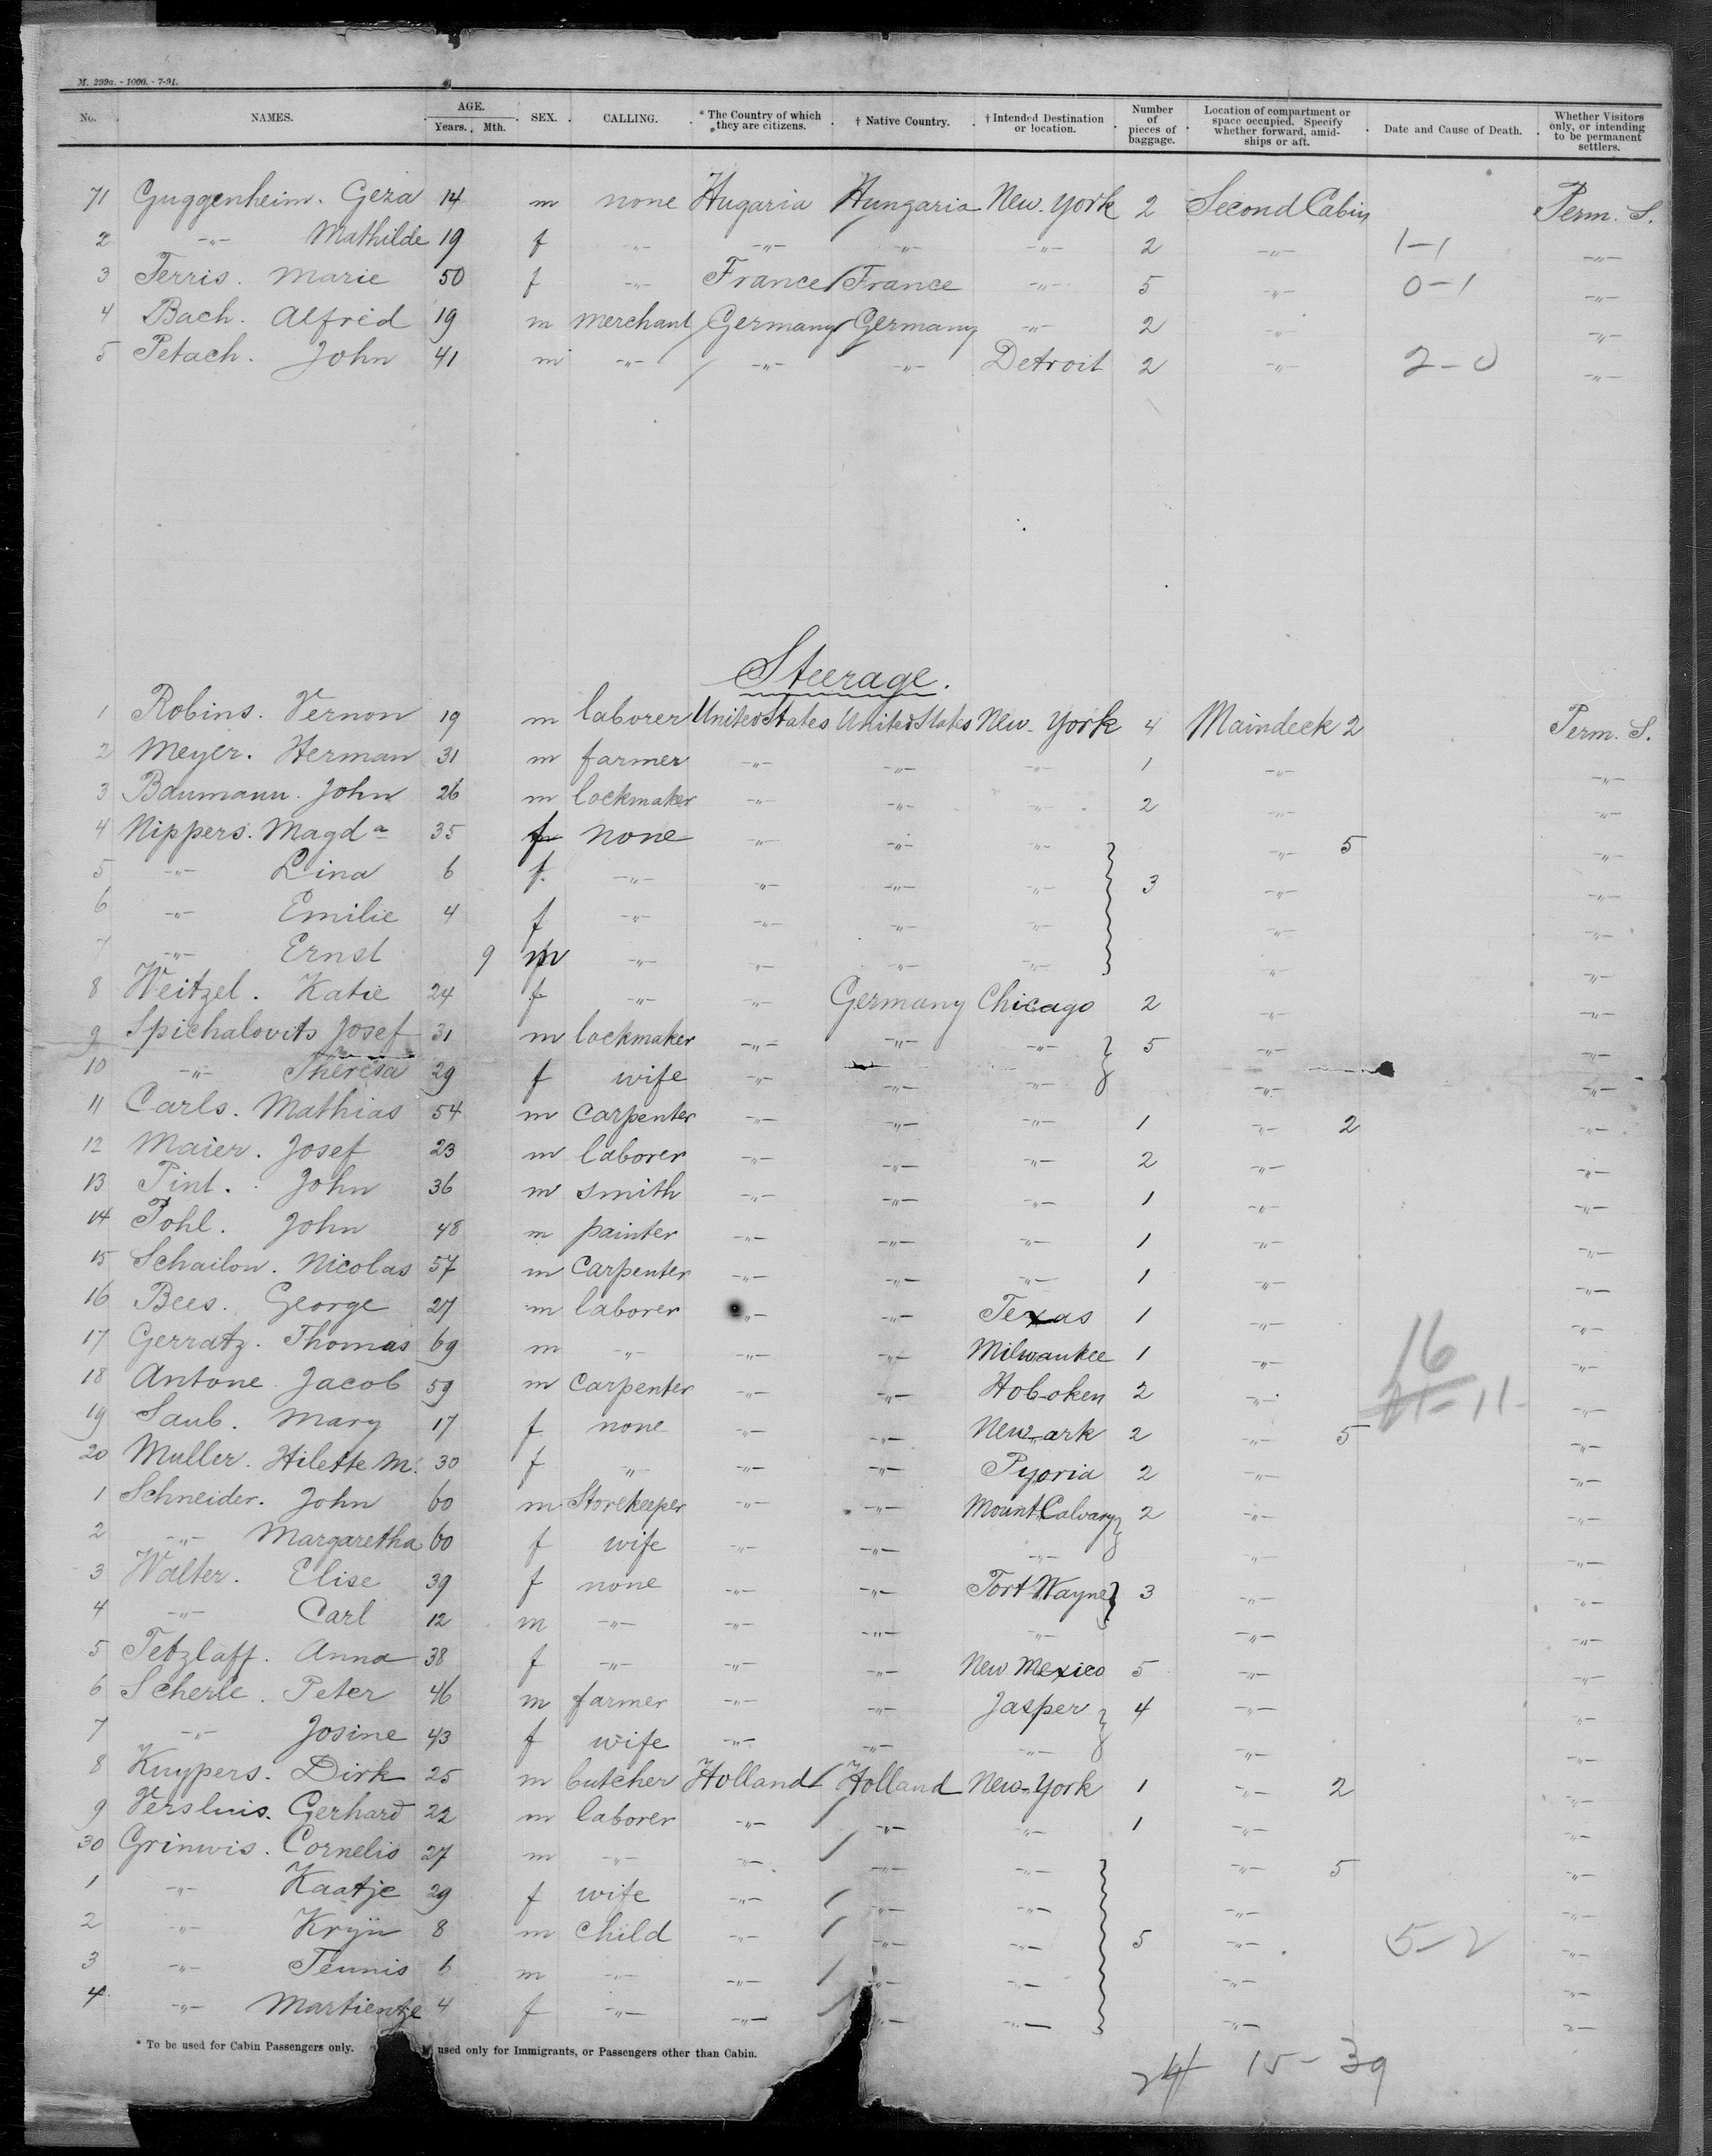 M. 299a. - 1000. - 7-91.
No. NAMES. AGE. Years. Mth. SEX. CALLING. * The Country of which they are citizens. † Native Country. † Intended Destination or location. Number of pieces of baggage. Location of compartment or space occupied. Specify whether forward, amidships or aft. Date and Cause of Death. Whether Visitors only, or intending to be permanent settlers.
71 Guggenheim. Geza 14 m none Hugaria Hungaria New-York 2 Second Cabin Perm. S.
2 -"- Mathilde 19 f -"- -"- -"- -"- 2 -"- 1-1 -"-
3 Ferris. Marie 50 f -"- France / France -"- 5 -"- 0-1 -"-
4 Bach. Alfred 19 m merchant / Germany / Germany -"- 2 -"- -"-
5 Petach. John 41 m -"- / -"- -"- Detroit 2 -"- 2-0 -"-
Steerage.
1 Robins. Vernon 19 m laborer United States United States New-York 4 Maindeck 2 Perm. S.
2 Meyer. Herman 31 m farmer -"- -"- -"- 1 -"- -"-
3 Baumann. John 26 m lockmaker -"- -"- -"- 2 -"- -"-
4 Nippers. Magda 35 f none -"- -"- -"- -"- 5 -"-
5 -"- Lina 6 f. -"- -"- -"- -"- 3 -"- -"-
6 -"- Emilie 4 f -"- -"- -"- -"- -"- -"-
7 -"- Ernst 9 m -"- -"- -"- -"- -"- -"-
8 Weitzel. Katie 24 f -"- -"- Germany Chicago 2 -"- -"-
9 Spichalovits Josef 31 m lockmaker -"- -"- -"- 5 -"- -"-
10 -"- Theresa 29 f wife -"- -"- -"- -"- -"-
11 Carls. Mathias 54 m carpenter -"- -"- -"- 1 -"- 2 -"-
12 Maier. Josef 23 m laborer -"- -"- -"- 2 -"- -"-
13 Pint. John 36 m smith -"- -"- -"- 1 -"- -"-
14 Pohl. John 48 m painter -"- -"- -"- 1 -"- -"-
15 Schailon. Nicolas 57 m carpenter -"- -"- -"- 1 -"- -"-
16 Bees. George 27 m laborer -"- -"- Texas 1 -"- -"-
17 Gerratz. Thomas 69 m -"- -"- -"- Milwaukee 1 -"- 16 -"-
18 Antone Jacob 59 m carpenter -"- -"- Hoboken 2 -"- 11- -"-
19 Saub. Mary 17 f none -"- -"- New-ark 2 -"- 5 -"-
20 Muller. Hilette M. 30 f -"- -"- -"- Pyoria 2 -"- -"-
1 Schneider. John 60 m Storekeeper -"- -"- Mount Calvary 2 -"- -"-
2 -"- Margaretha 60 f wife -"- -"- -"- -"- -"-
3 Walter. Elise 39 f none -"- -"- Fort Wayne 3 -"- -"-
4 -"- Carl 12 m -"- -"- -"- -"- -"- -"-
5 Tetzlaff. Anna 38 f -"- -"- -"- New Mexico 5 -"- -"-
6 Scherle. Peter 46 m farmer -"- -"- Jasper 4 -"- -"-
7 -"- Josine 43 f wife -"- -"- -"- -"- -"-
8 Kuypers. Dirk 25 m butcher Holland / Holland New-York 1 -"- 2 -"-
9 Versluis. Gerhard 22 m laborer -"- -"- -"- 1 -"- -"-
30 Grinwis. Cornelis 27 m -"- -"- / -"- -"- -"- 5 -"-
1 -"- Kaatje 29 f wife -"- / -"- -"- -"- -"-
2 -"- Krijn 8 m child -"- / -"- -"- 5 -"- 5-2 -"-
3 -"- Teunis 6 m -"- -"- / -"- -"- -"- -"-
4 -"- Martientze 4 f -"- -"- / -"- -"- -"- -"-
* To be used for Cabin Passengers only. used only for Immigrants, or Passengers other than Cabin.
24 15-39